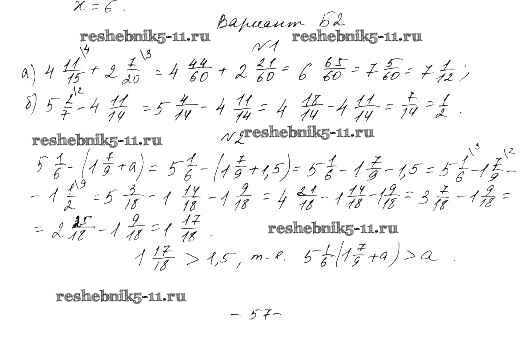 x = 6.
Вариант Б2
reshebnik5-11.ru reshebnik5-11.ru
N1
а) 4 11/15 \4 + 2 7/20 \3 = 4 44/60 + 2 21/60 = 6 65/60 = 7 5/60 = 7 1/12;
б) 5 2/7 \2 - 4 11/14 = 5 4/14 - 4 11/14 = 4 18/14 - 4 11/14 = 7/14 = 1/2.
reshebnik5-11.ru N2 reshebnik5-11.ru
5 1/6 - (1 7/9 + a) = 5 1/6 - (1 7/9 + 1,5) = 5 1/6 - 1 7/9 - 1,5 = 5 1/6 \3 - 1 7/9 \2 -
- 1 1/2 \9 = 5 3/18 - 1 14/18 - 1 9/18 = 4 21/18 - 1 14/18 - 1 9/18 = 3 7/18 - 1 9/18 =
= 2 25/18 - 1 9/18 = 1 17/18 .
reshebnik5-11.ru
1 17/18 > 1,5, т.е. 5 1/6 (1 7/9 + a) > a .
reshebnik5-11.ru
- 57 -